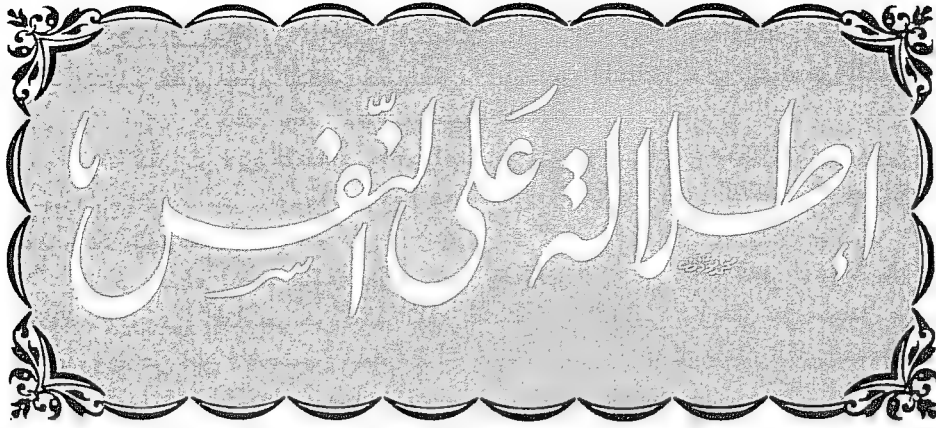 إطلالة على النّفس